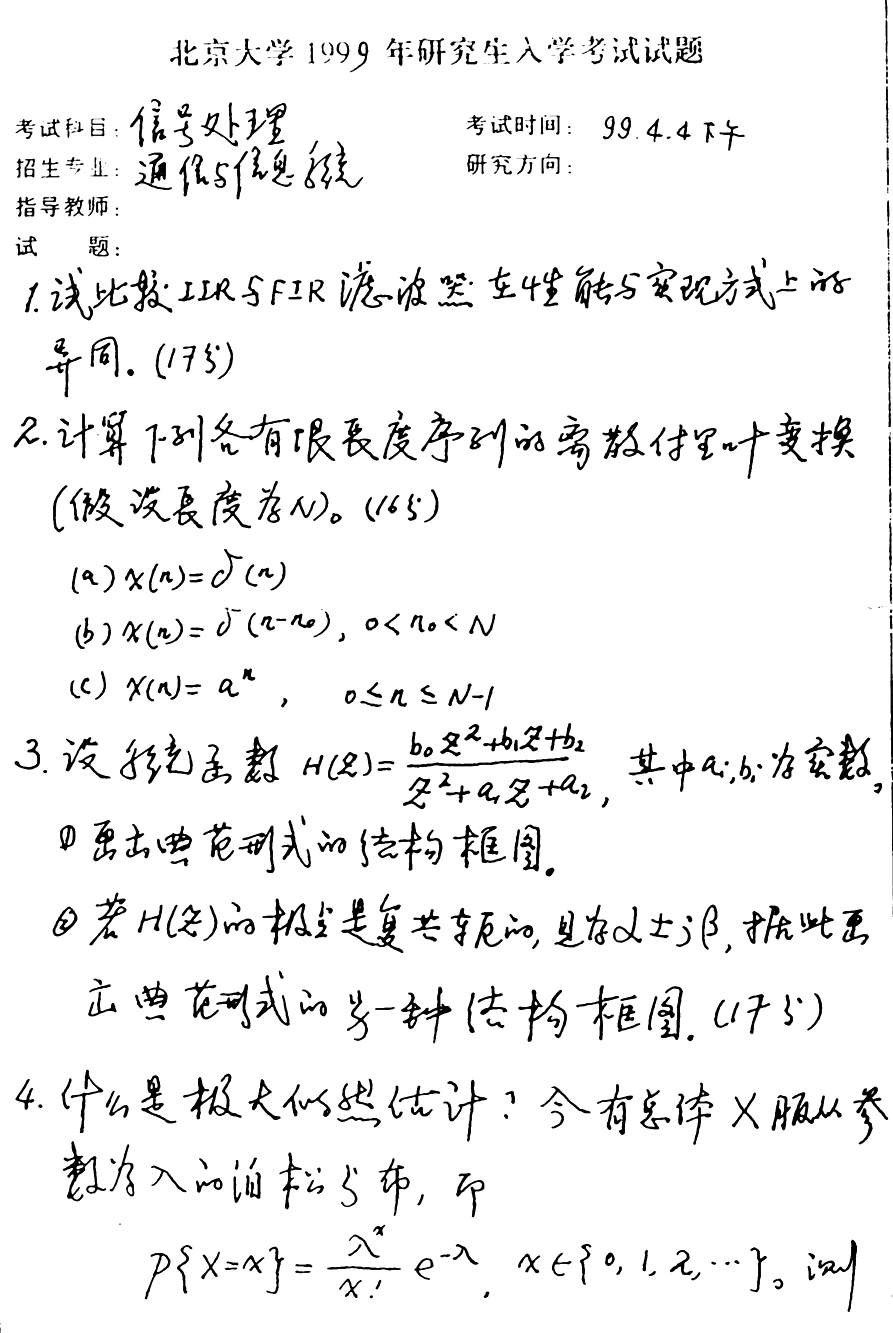 北京大学1999年研究生入学考试试题
考试科目：信号处理 考试时间：99.4.4下午
招生专业：通信与信息系统 研究方向：
指导教师：
试 题：
1.试比较IIR与FIR滤波器在性能与实现方式上的
异同。(17分)
2.计算下列各有限长度序列的离散付里叶变换
(假设长度为N)。(16分)
(a) x(n)=δ(n)
(b) x(n)=δ(n-n₀), 0<n₀<N
(c) x(n)=aⁿ, 0≤n≤N-1
3.设系统函数 H(z)=(b₀z²+b₁z+b₂)/(z²+a₁z+a₂), 其中aᵢ,bᵢ为实数。
① 画出典范形式的结构框图。
② 若H(z)的极点是复共轭的,且为α±jβ,据此画
出典范形式的另一种结构框图.(17分)
4.什么是极大似然估计?今有总体X服从参
数为λ的泊松分布,即
P{X=x}=λˣ/x! e^{-λ}, x∈{0,1,2,…}。测